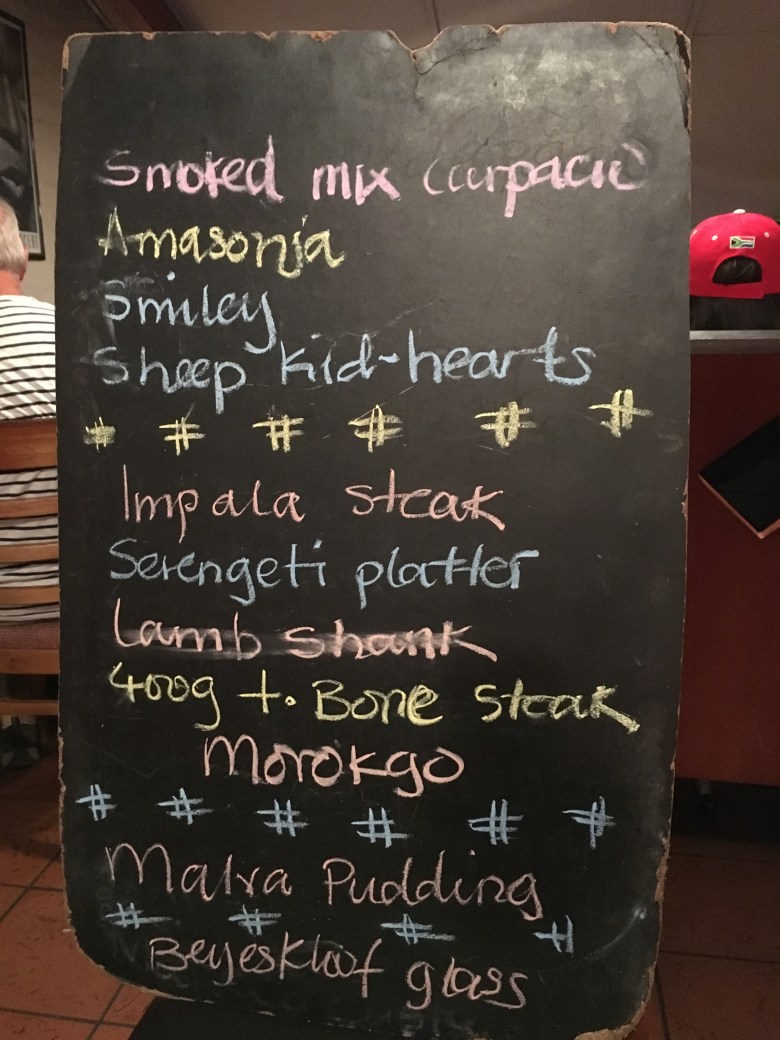 Smoked mix Carpacio
Amasonja
Smiley
Sheep kid-hearts
# # # # # #
Impala steak
Serengeti platter
Lamb Shank
400g t. Bone steak
Morokgo
# # # # # #
Malva Pudding
# # # #
Beyeskloof glass